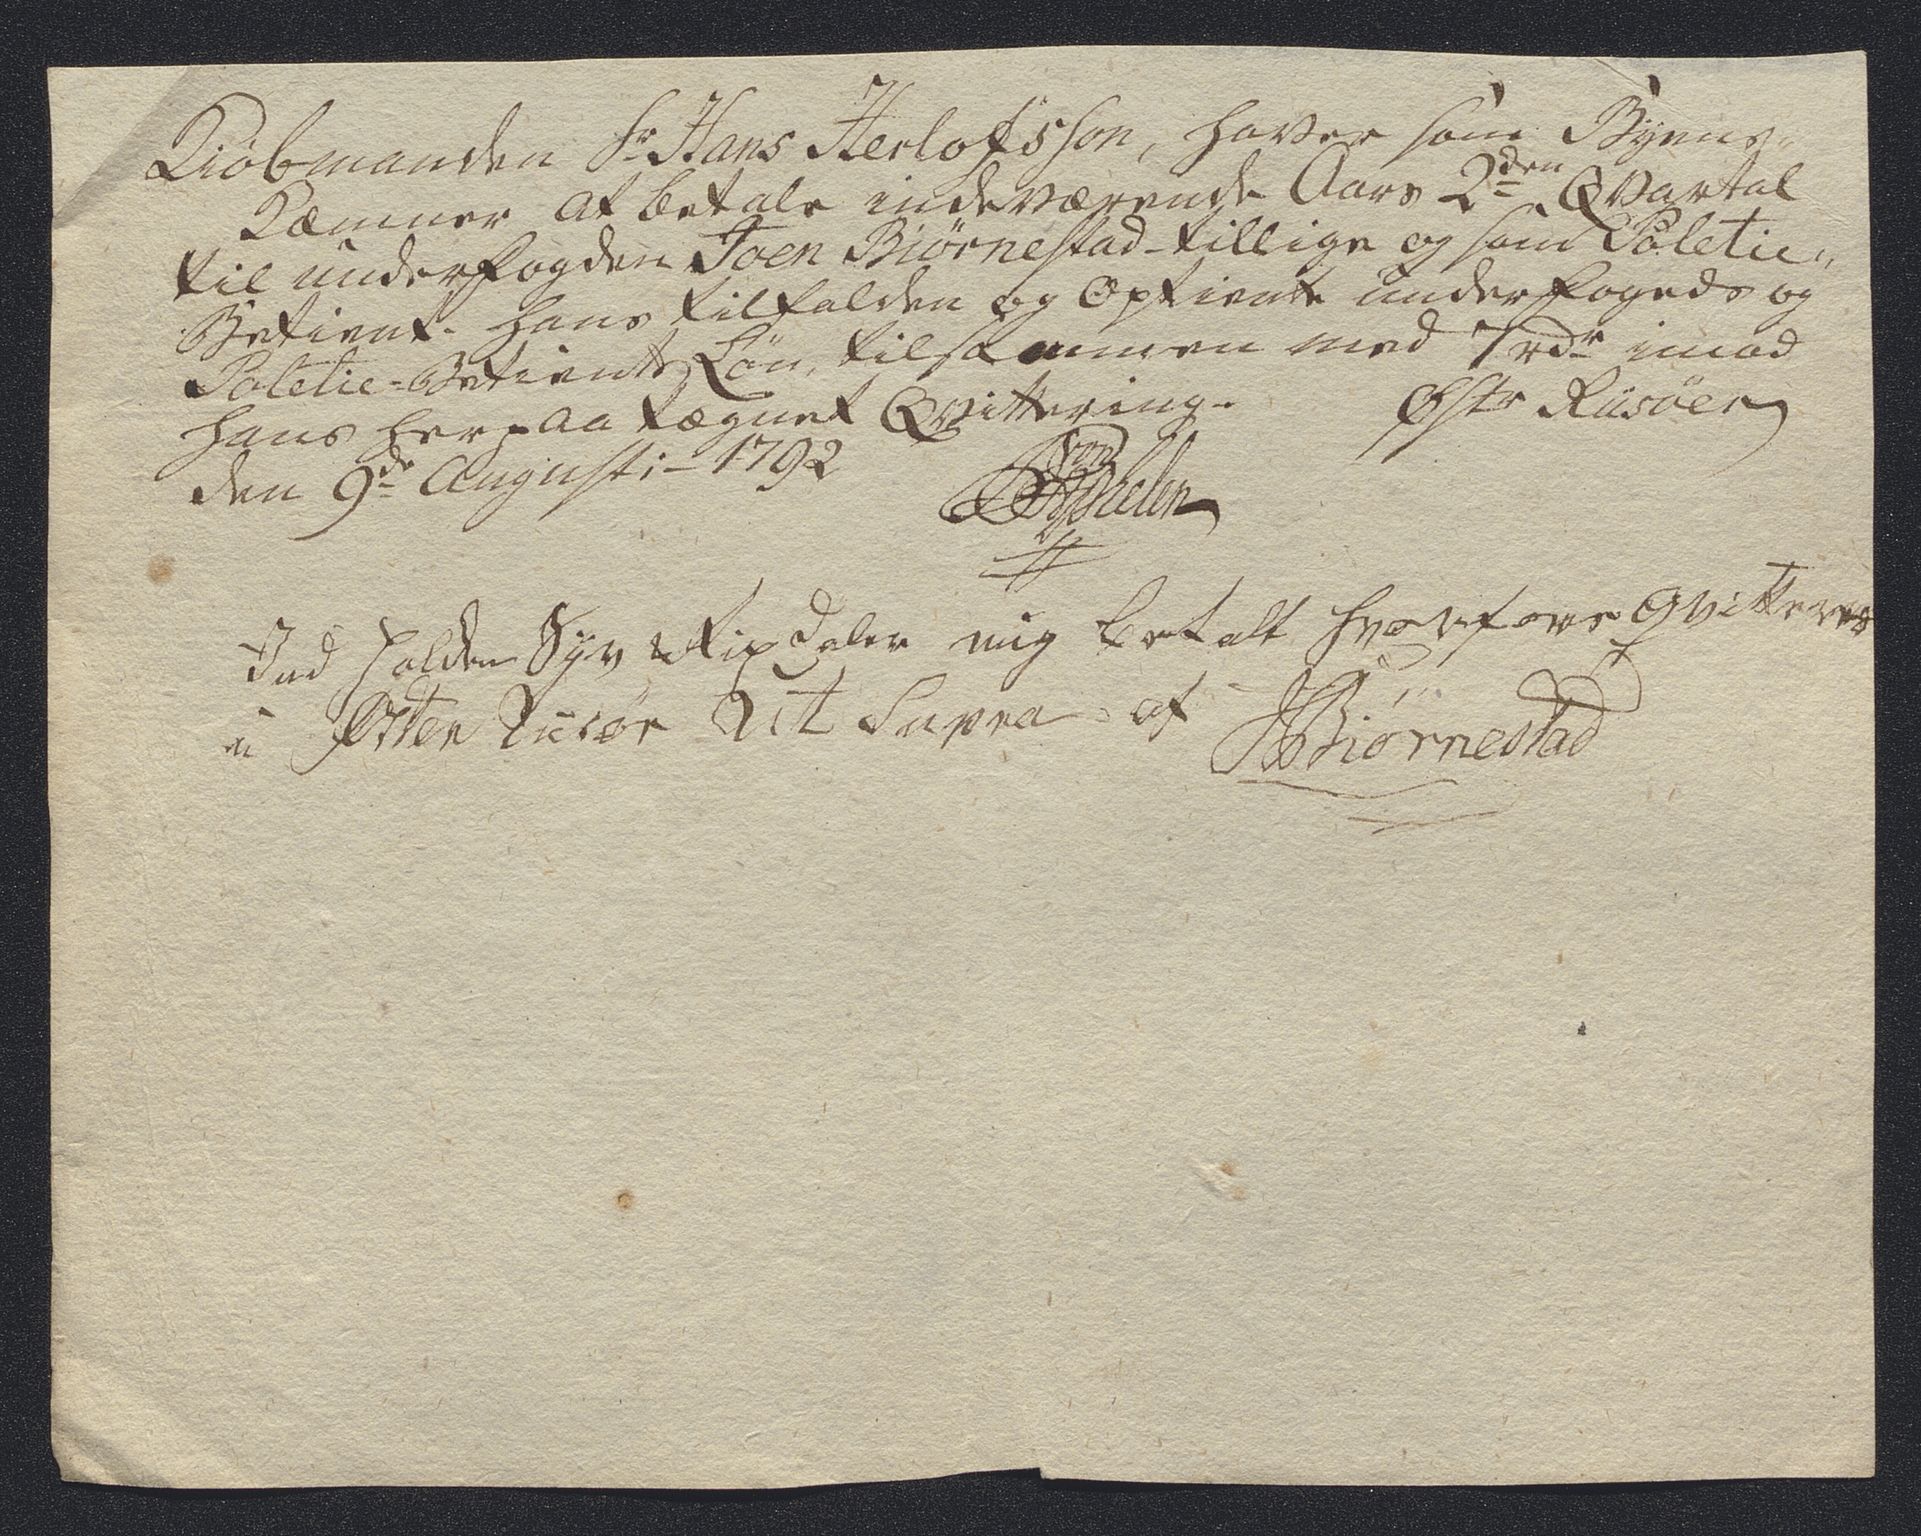 Kiöbmanden Sr Hans Herlofsson, haver som Byens
Kæmner at betale indeværende Aars 2den Qvartal
til underfogden Joen Biörnestad tillige og som Poletie-
Betient hans tilfalden og optiente underfogeds og
Poletie-Betients Lön, tilsammen med 7 rdr imod
hans herpaa tægnet Qvittering. Østr Riisöer
den 9de Augusti 1792
Ind holden Syv Rix daler mig betalt hvorfore qvitteres
Øster Riisör Ut Supra af JBiørnestad